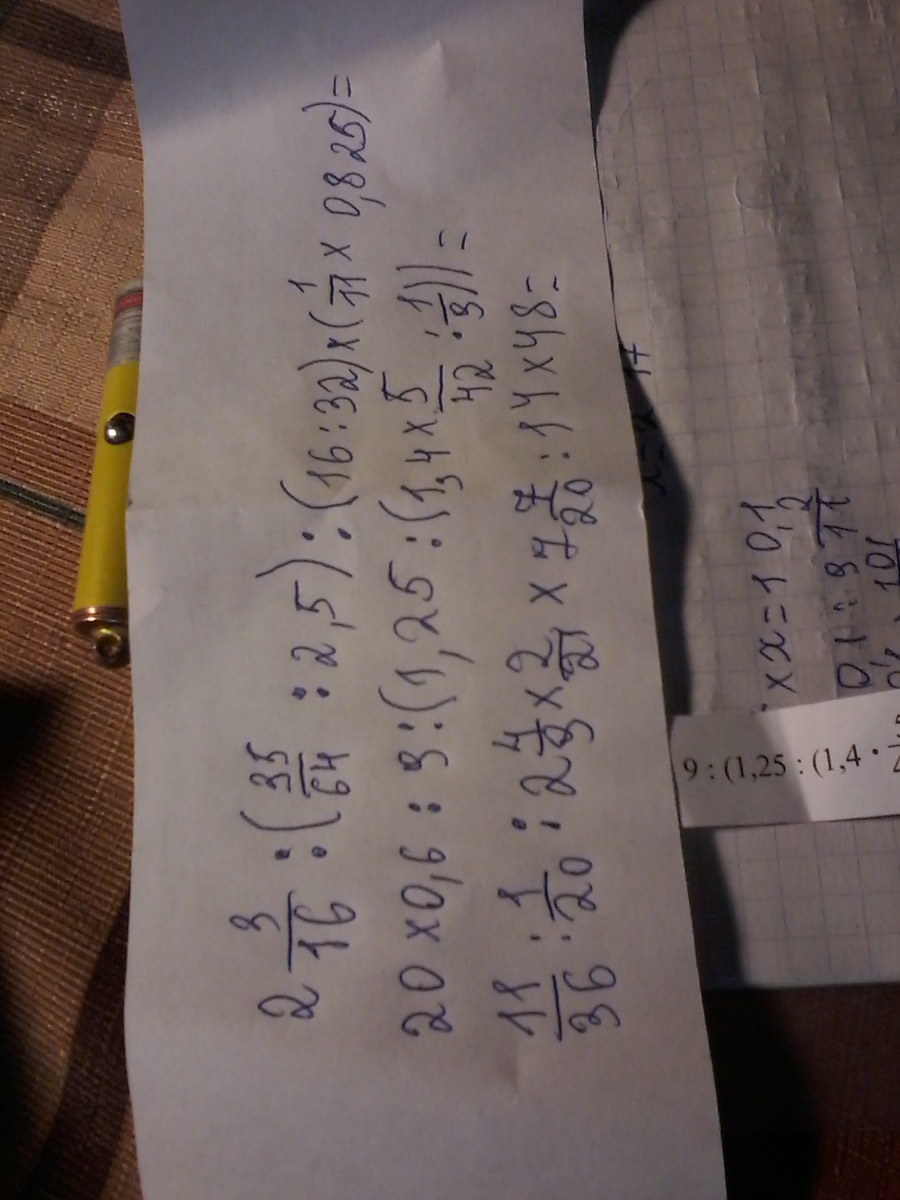 2 3/16 : (35/64 : 2,5) : (16 : 32) × (1/11 × 0,825) =
20 × 0,6 : 9 : (1,25 : (1,4 × 5/42 : 1/3)) =
11/36 : 1/20 : 2 4/9 × 2/21 × 7 7/20 : 14 × 48 =
9 : (1,25 : (1,4 ·
x = 10,1
0,1 : 9 2/11